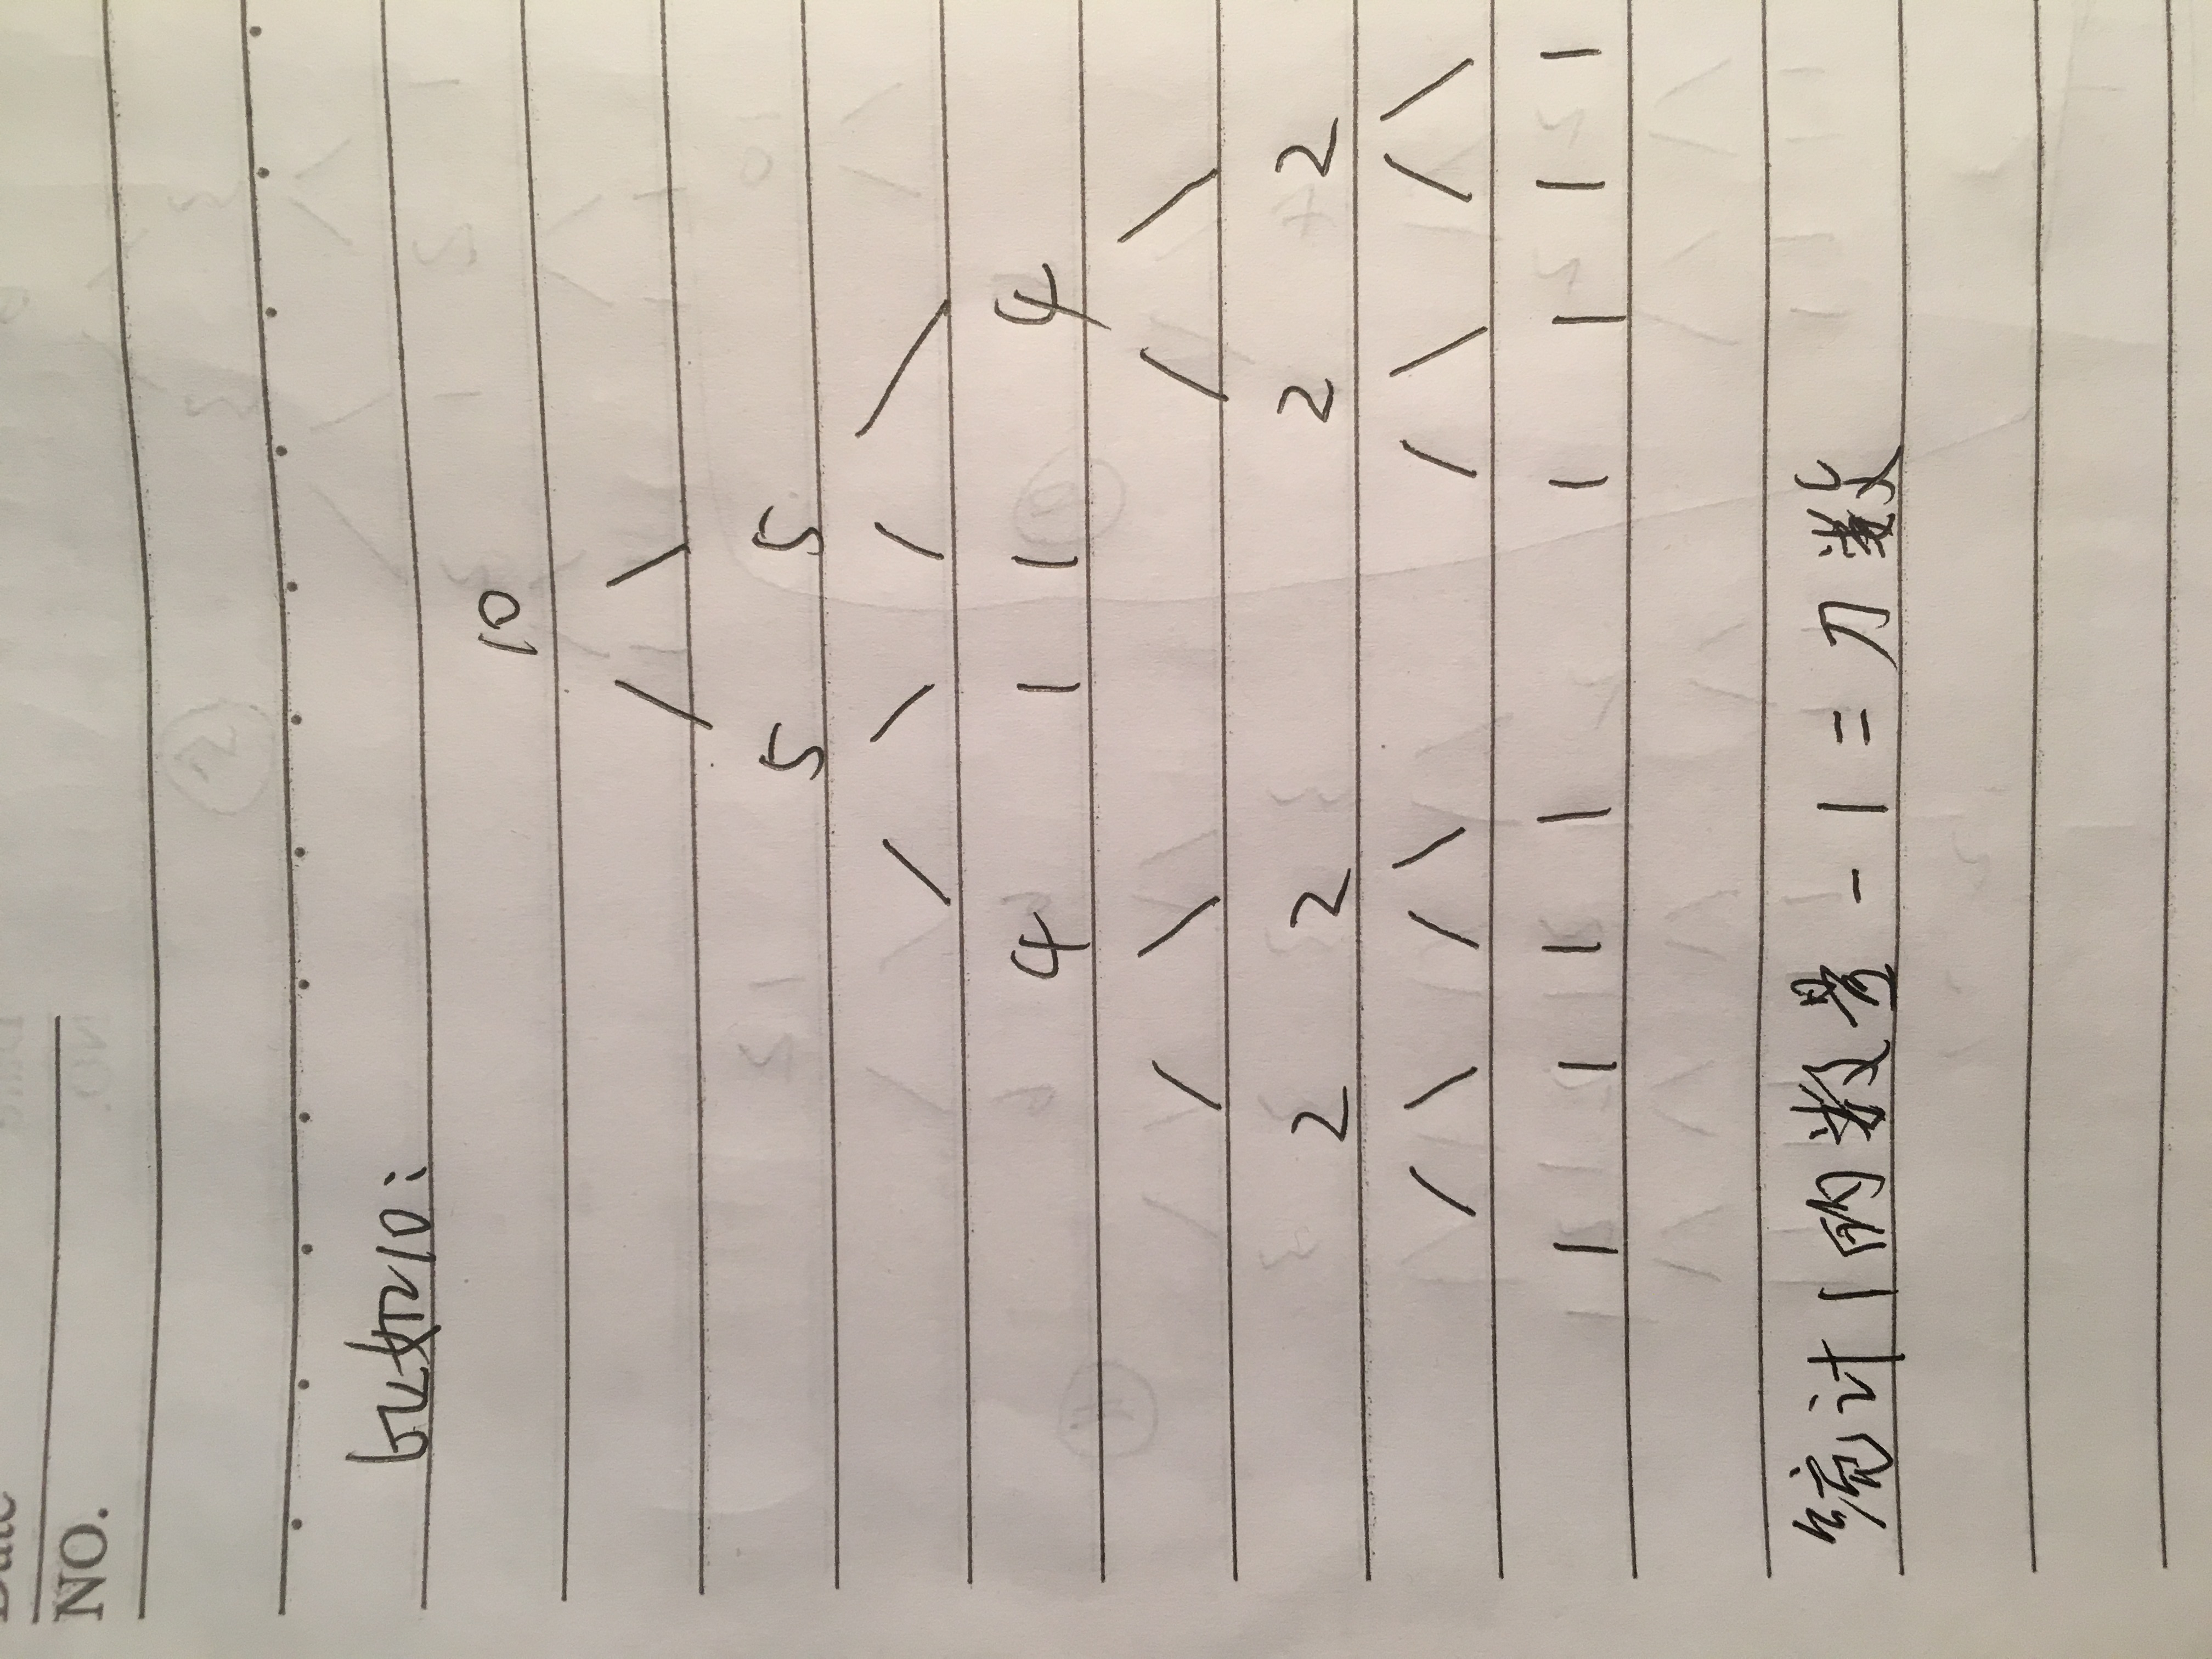 Date
NO.
比如10:
10
5 5
4 1 1 4
2 2 2 2
1 1 1 1 1 1 1 1
统计1的数量-1=刀数